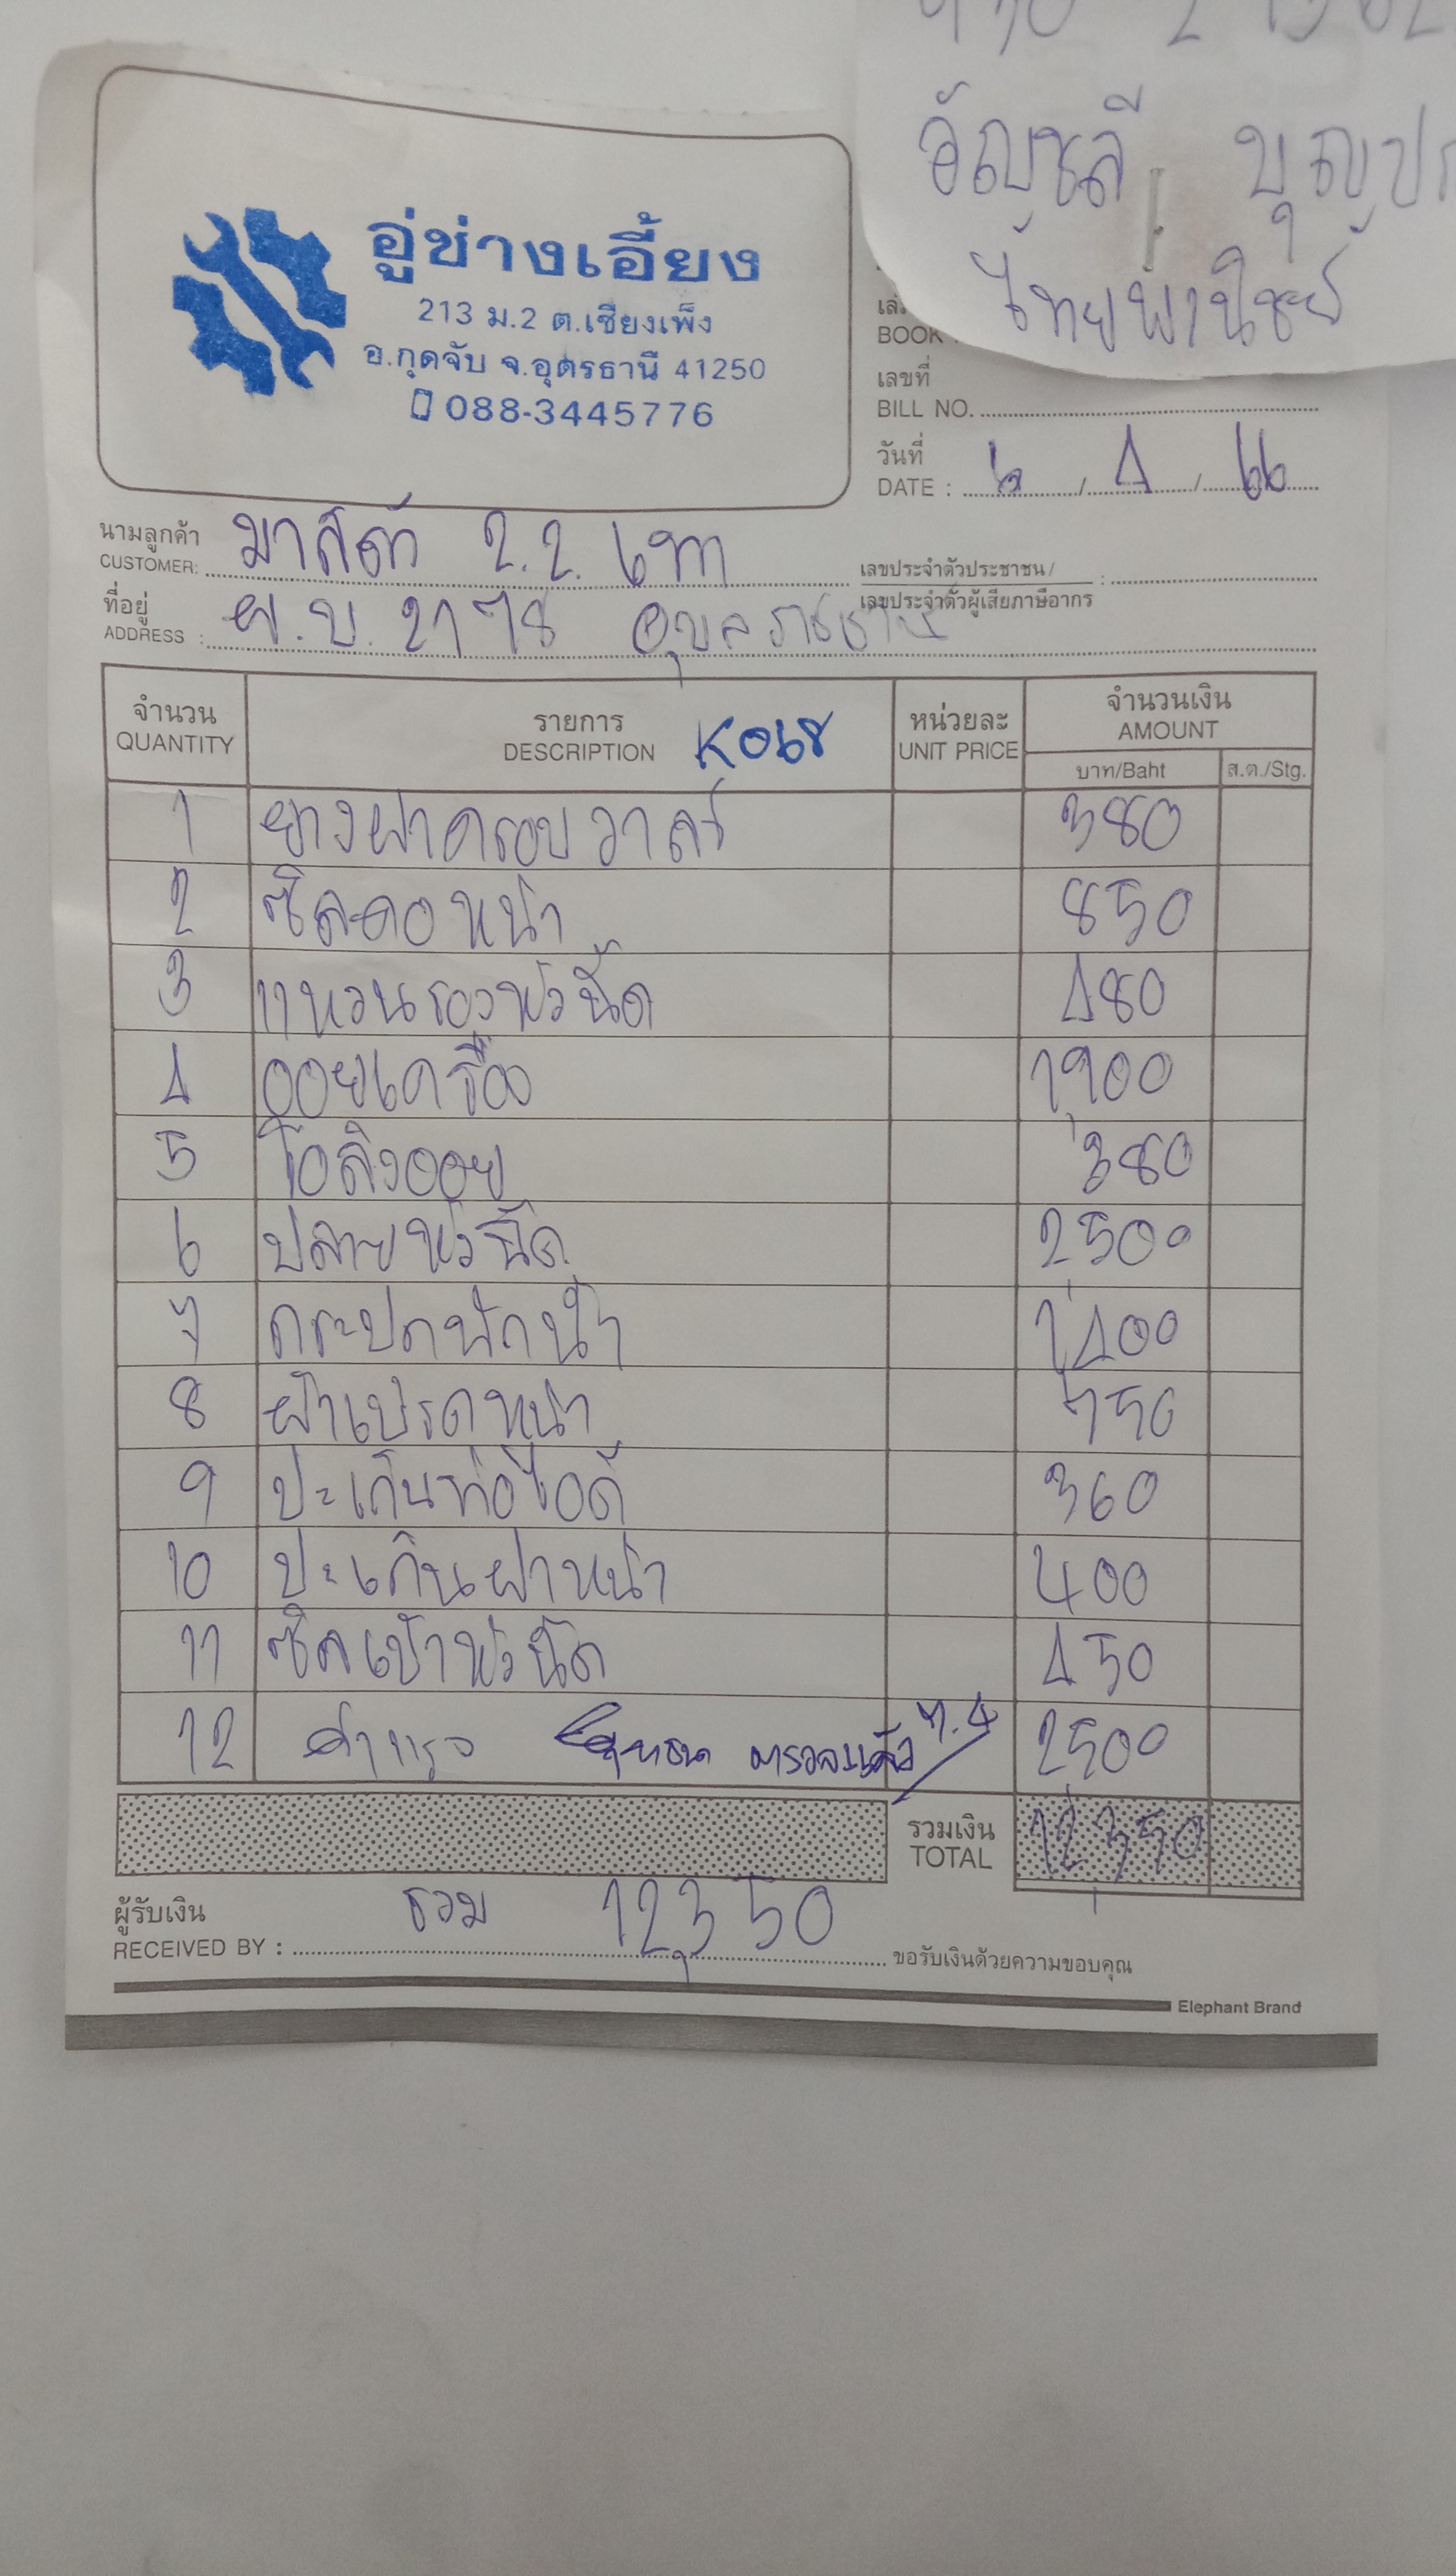 อัญชลี บุญปร
ไทยพานิชย์
อู่ช่างเอี้ยง
213 ม.2 ต.เชียงเพ็ง
อ.กุดจับ จ.อุดรธานี 41250
088-3445776
BOOK
เลขที่
BILL NO.
วันที่
DATE : 6 / 4 / 66
นามลูกค้า
CUSTOMER: มาสด้า 2.2. เทา
เลขประจำตัวประชาชน/ :
เลขประจำตัวผู้เสียภาษีอากร
ที่อยู่
ADDRESS : ผ.บ. 2178 อุบลราชธานี
จำนวน รายการ หน่วยละ จำนวนเงิน
QUANTITY DESCRIPTION K068 UNIT PRICE AMOUNT
บาท/Baht ส.ต./Stg.
1 ยางฝาครอบวาล์ว 380
2 ซีลคอหน้า 850
3 แหวนรองหัวฉีด 480
4 ออยเครื่อง 1,900
5 โอลิงออย 380
6 ปลายหัวฉีด 2,500
7 กระปุกพักน้ำ 1,400
8 ผ้าเบรคหน้า 750
9 ปะเก็นท่อไอดี 360
10 ปะเก็นฝาหน้า 400
11 ซีลเบ้าหัวฉีด 450
12 ค่าแรง ตรวจแล้ว 2,500
รวมเงิน 12,350
TOTAL
ผู้รับเงิน รวม 12,350
RECEIVED BY : ขอรับเงินด้วยความขอบคุณ
Elephant Brand